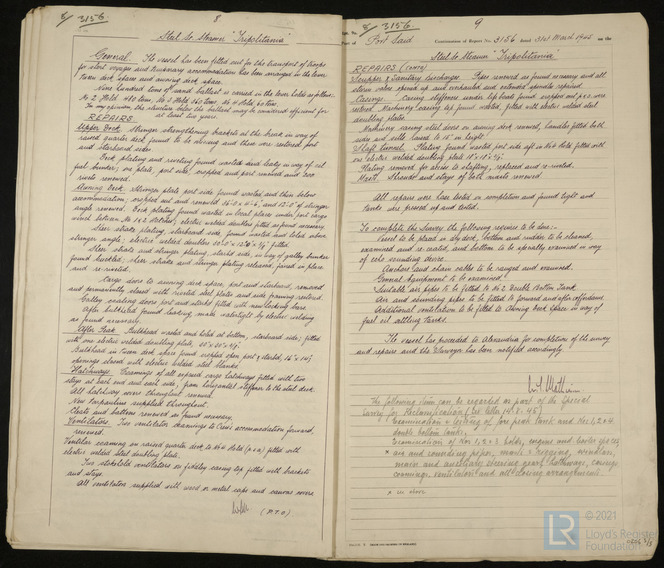 8/3156. 8
Steel Sc. Steamer "Tripolitania"
General. The vessel has been fitted out for the transport of troops
for short voyages and temporary accommodation has been arranged in the lower
tween deck spaces and awning deck space.
Nine hundred tons of sand ballast is carried in the lower holds as follows:
In my opinion, the structure below the ballast may be considered efficient for
at least two years.
REPAIRS.
Upper Deck. Stringer strengthening brackets at the break in way of
raised quarter deck found to be slewing and these were restored port
and starboard sides.
Deck plating and riveting found wasted and leaky in way of oil
fuel bunker; one plate, port side, cropped and part renewed and 200
rivets renewed.
Awning Deck. Stringer plate port side found wasted and thin below
accommodation, cropped out and renewed
angle renewed. Deck plating found wasted in local places under port cargo
winch between No 1 & 2 hatches; electric welded doublers fitted as found necessary.
Sheer strake plating, starboard side, found wasted and holed above
stringer angle; electric welded doublers fitted.
Sheer strake and stringer plating, starbd side, in way of galley bunker
found buckled; sheer strake and stringer plating released, faired in place
and re-riveted.
Cargo doors to awning deck space, port and starboard, removed
and permanently closed with riveted steel plates and side framing restored.
Galley coaling doors port and starbd fitted with new locking bars.
After bulkhead found leaking, made watertight by electric welding
as found necessary.
After Peak. Bulkhead wasted and holed at bottom, starboard side, fitted
with one electric welded doubling plate,
Bulkhead in tween deck space found cropped open port & starbd,
openings closed with electric welded steel blanks.
Hatchways. Coamings of all exposed cargo hatchways fitted with two
stays at each end and each side, from horizontal stiffener to the steel deck.
All hatchway covers throughout renewed.
New tarpaulins supplied throughout.
Cleats and battens renewed as found necessary.
Ventilators. Two ventilator coamings to Crew's accommodation forward,
renewed.
Ventilator coaming on raised quarter deck to No 4 Hold (p.s.a) fitted with
electric welded steel doubling plate.
Two stokehold ventilators on fiddley casing top fitted with brackets
and stays.
All ventilators supplied with wood or metal caps and canvas covers.
(P.T.O)
8/3156. 9
Port of Port Said Continuation of Report No. 3156 dated 31st March 1945 on the
Steel Sc. Steamer "Tripolitania"
REPAIRS (CONTD)
Scupper & Sanitary discharges. Pipes renewed as found necessary and all
storm valves opened up and overhauled and extended spindle repaired.
Casings. Casing stiffeners under top found cropped
restored. Machinery casing top found wasted, fitted with electric welded steel
doubling plates.
Machinery casing steel doors on awning deck renewed, handles fitted both
sides and sills raised to 15" in height.
Shaft tunnel. Plating found wasted port side aft in No 4 hold fitted with
one electric welded doubling plate
Plating removed for access to shafting, replaced and re-riveted.
Masts. Shrouds and stays of both masts renewed.
All repairs were hose tested on completion and found tight and
tanks as pressed up and tested.
To complete the Survey the following requires to be done:-
Vessel to be placed in dry dock, bottom and rudder to be cleaned,
examined and re-coated, and bottom to be specially examined in way
of echo sounding device.
Anchors and chain cables to be ranged and examined.
General Equipment to be examined.
Suitable air pipes to be fitted to No 2 Double Bottom Tank.
Air and sounding pipes to be fitted to forward and after cofferdams.
Additional ventilation to be fitted to Awning Deck space in way of
fuel oil settling tanks.
The vessel has proceeded to Alexandria for completion of the survey
and repairs and the Surveyor has been notified accordingly.
The following items can be regarded as part of the Special
Survey for Reclassification (see letter 14.5.45)
Examination & testing of fore peak tank and Nos 1, 2 & 4
double bottom tanks.
Examination of Nos 1, 2 & 3 holds, engine and boiler spaces
x air and sounding pipes, masts & rigging, windlass,
main and auxiliary steering gear, hatchways, casings,
coamings, ventilators and all closing arrangements.
x see above
© 2021
Lloyd's Register
Foundation